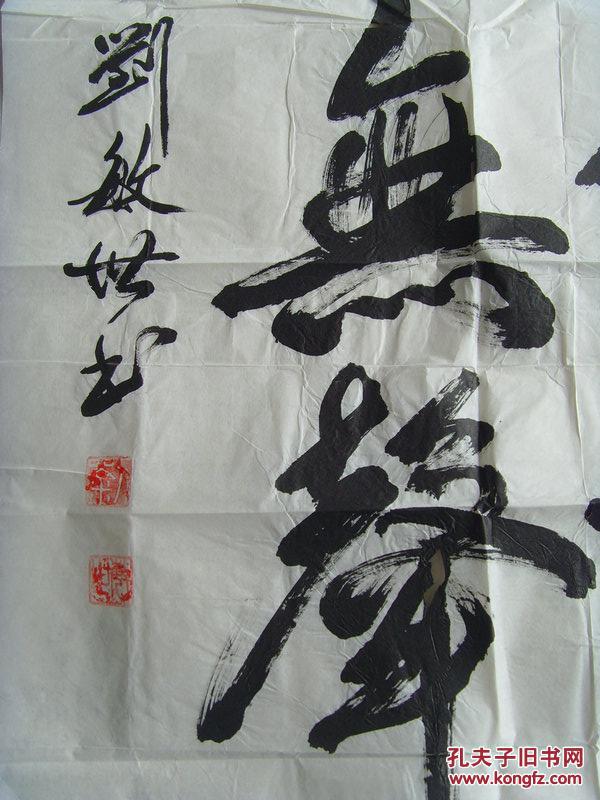 無聲
劉敏世书
孔夫子旧书网
www.kongfz.com